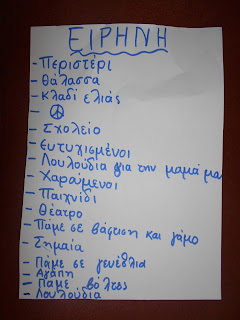 ΕΙΡΗΝΗ
- Περιστέρι
- Θάλασσα
- Κλαδί ελιάς
- ☮
- Σχολείο
- Ευτυχισμένοι
- Λουλούδια για την μαμά μας
- Χαρούμενοι
- Παιχνίδι
- Θέατρο
- Πάμε σε βάφτιση και γάμο
- Σημαία
- Πάμε σε γενέθλια
- Αγάπη
- Πάμε βόλτες
- Λουλούδια